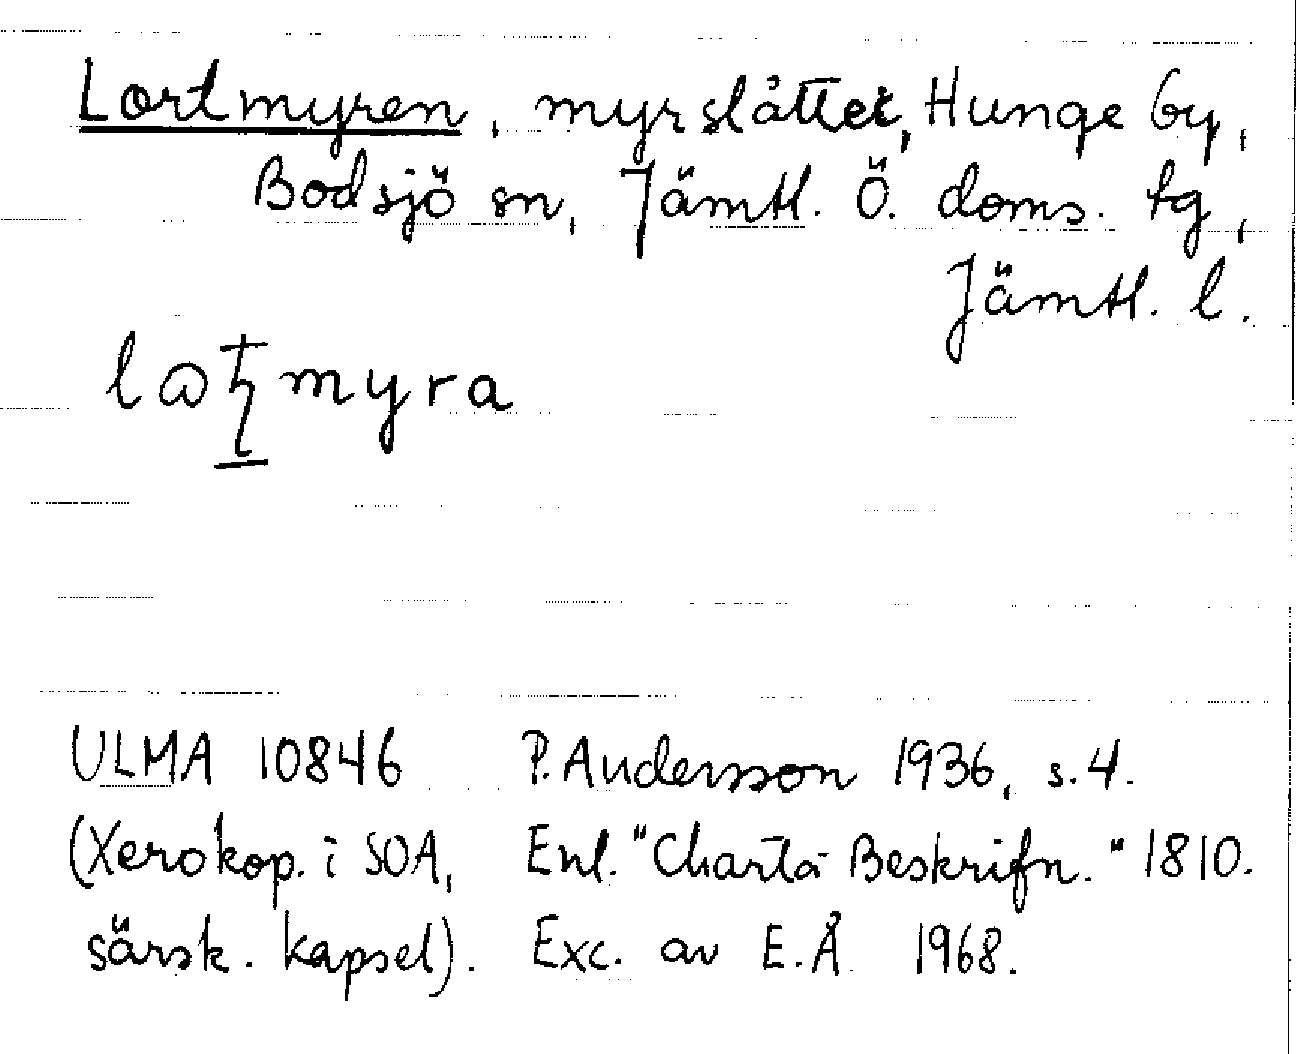 Lortmyren, myrslåtter, Hunge by,
Bodsjö sn, Jämtl. Ö. doms. tg,
Jämtl. l.
ULMA 10846 P. Andersson 1936, s. 4.
(Xerokop. i SOA, Enl. "Charta Beskrifn." 1810.
särsk. kapsel). Exc. av E.Å. 1968.